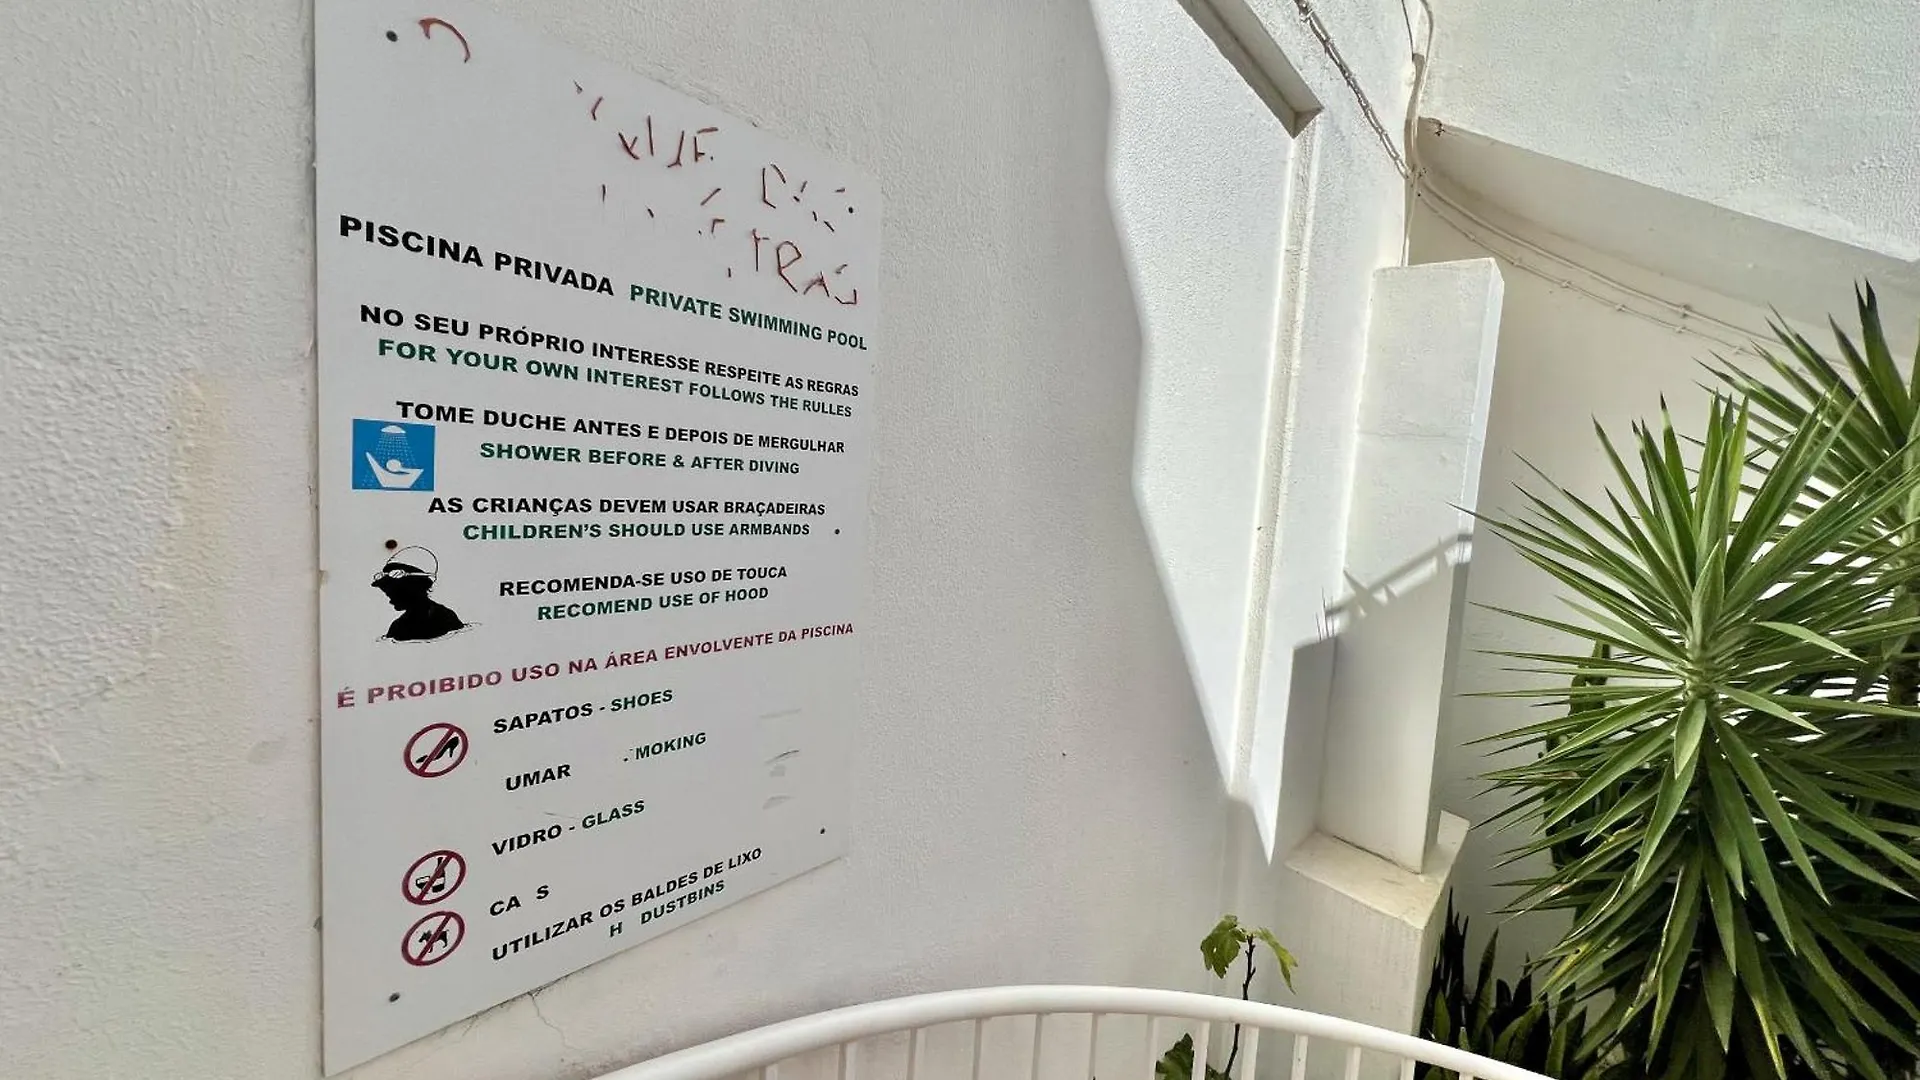 PISCINA PRIVADA PRIVATE SWIMMING POOL
NO SEU PRÓPRIO INTERESSE RESPEITE AS REGRAS
FOR YOUR OWN INTEREST FOLLOWS THE RULLES
TOME DUCHE ANTES E DEPOIS DE MERGULHAR
SHOWER BEFORE & AFTER DIVING
AS CRIANÇAS DEVEM USAR BRAÇADEIRAS
CHILDREN'S SHOULD USE ARMBANDS
RECOMENDA-SE USO DE TOUCA
RECOMEND USE OF HOOD
É PROIBIDO USO NA ÁREA ENVOLVENTE DA PISCINA
SAPATOS - SHOES
UMAR MOKING
VIDRO - GLASS
CA S
UTILIZAR OS BALDES DE LIXO
H DUSTBINS